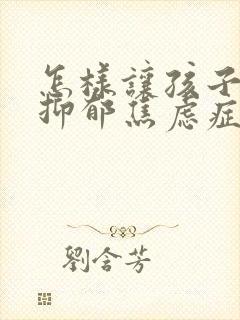 怎樣讓孩子
抑郁焦虑症
劉含芳